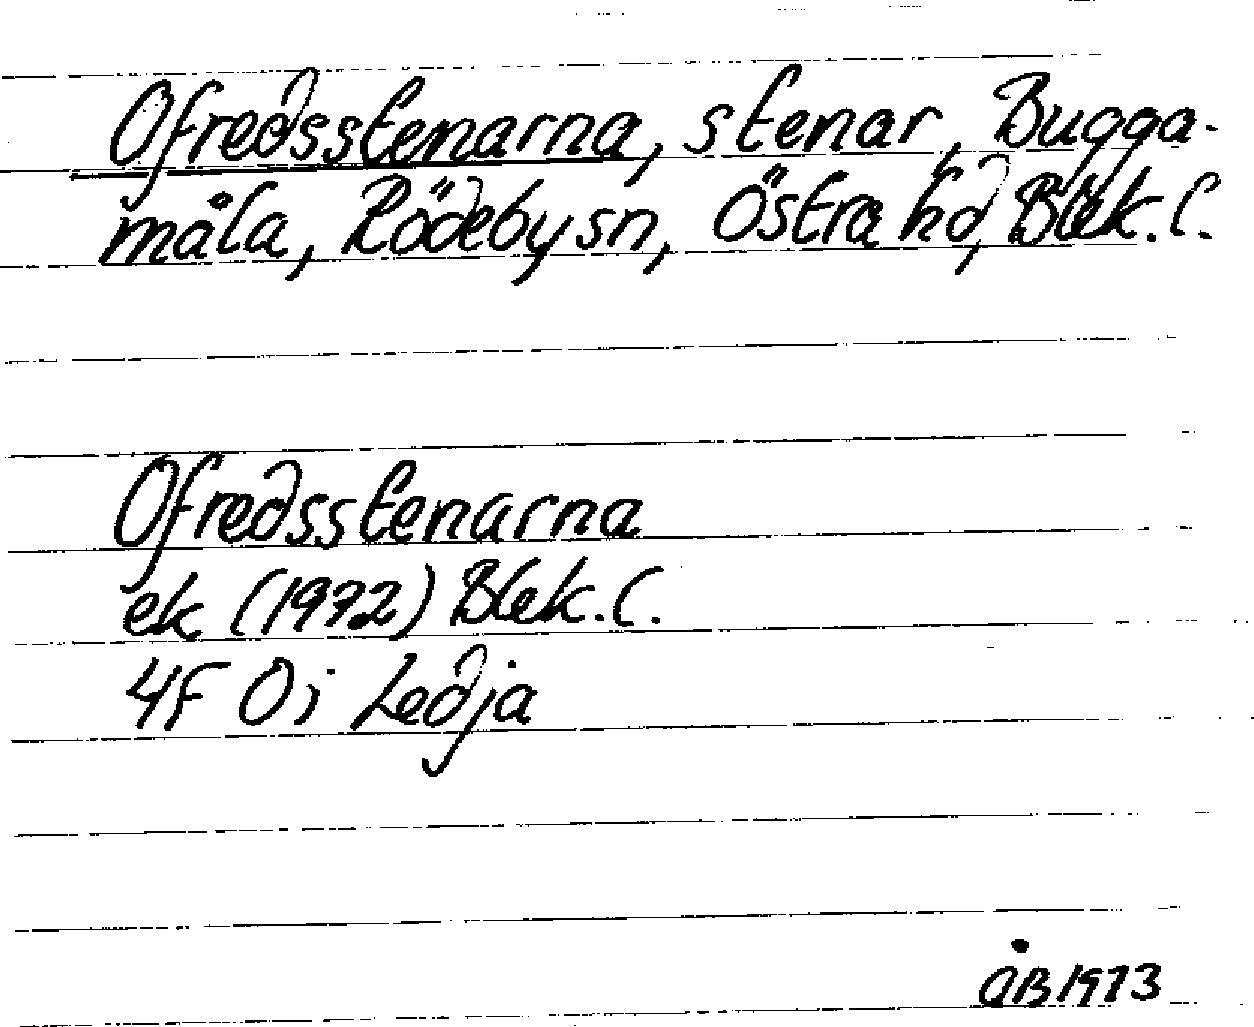 Ofredsstenarna, stenar, Bugga-
måla, Rödeby sn, Östra hd, Blek. l.
Ofredsstenarna
ek (1972) Blek. l.
4F 0i Ledja
ÅB 1973